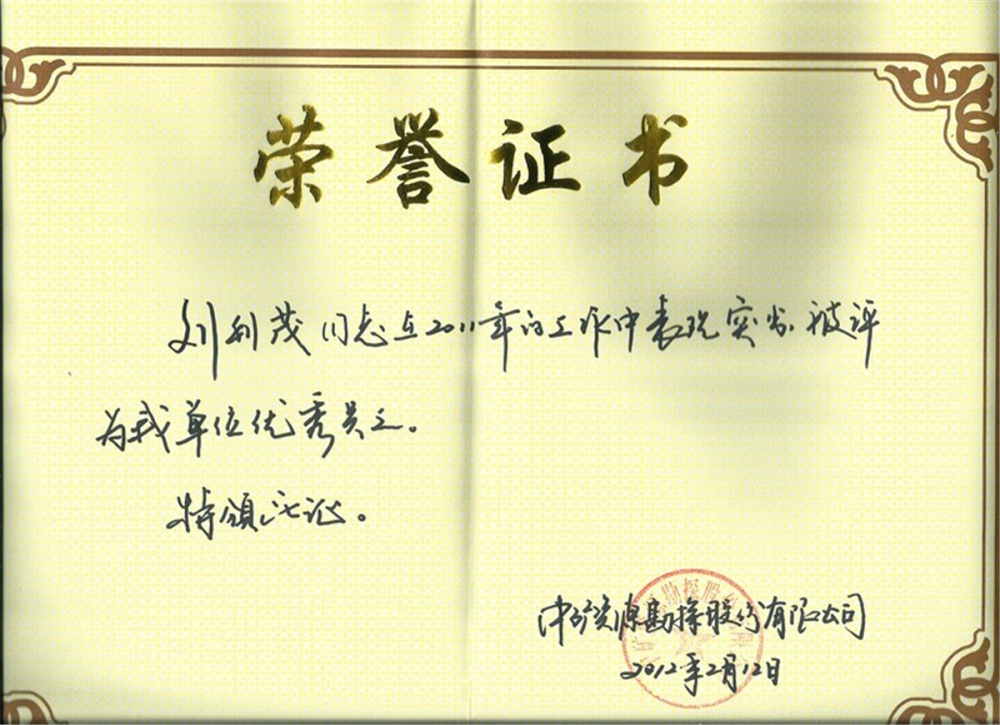 荣誉证书
刘利茂同志在2011年的工作中表现突出被评
为我单位优秀员工。
特颁此证。
中矿资源勘探股份有限公司
2012年2月12日